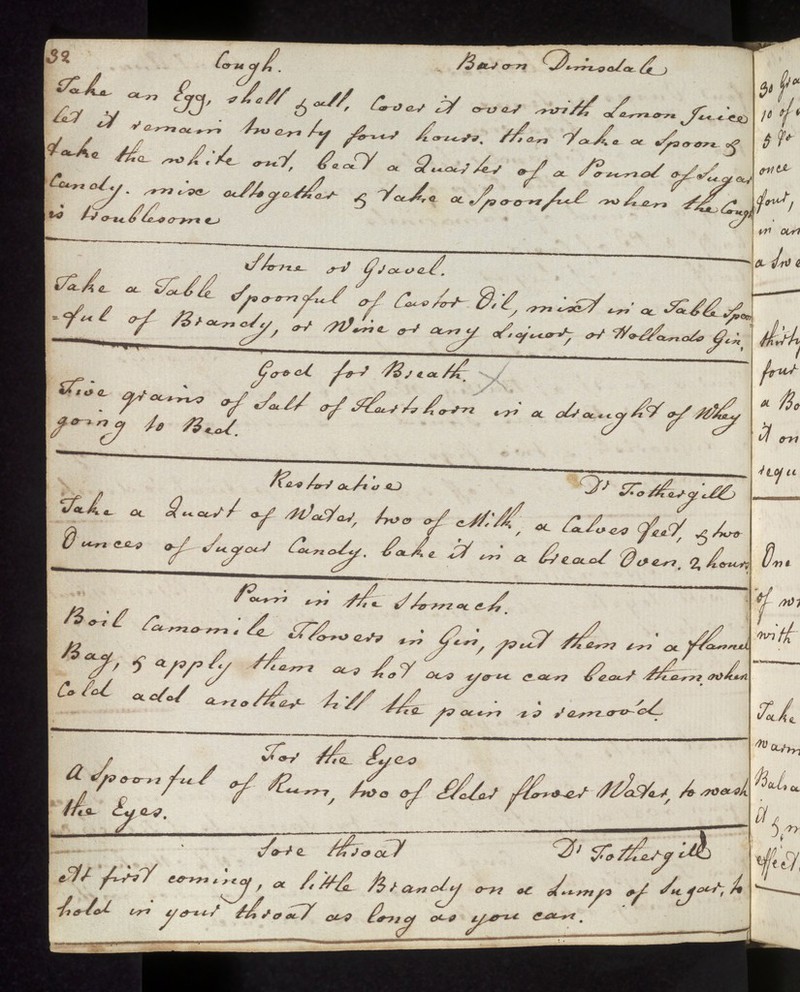 32
Cough. Baron Dimsdale
Take an Egg, shell & all, Cover it over with Lemon Juice
let it remain twenty four hours. then take a Spoon &
take the white out, beat a Quarter of a Pound of Sugar
Candy. mix altogether & take a Spoonful when the Cough
is troublesome
Stone or Gravel.
Take a Table Spoonful of Castor Oil, mixt in a Table Spoon
=ful of Brandy, or Wine or any Liquor, or Hollands Gin.
Good for Breath. X
Five grains of Salt of Hartshorn in a draught of Whey
going to Bed.
Restorative Dr Fothergill
Take a Quart of Water, two of Milk, a Calves feet, & two
Ounces of Sugar Candy. bake it in a bread Oven. 2 hours.
Pain in the Stomach.
Boil Camomile Flowers in Gin, put them in a flannel
Bag, & apply them as hot as you can bear them. when
Cold add another till the pain is remov'd.
For the Eyes
A Spoonful of Rum, two of Elder flower Water, to wash
the Eyes.
Sore throat Dr Fothergill
At first coming, a little Brandy on a Lump of Sugar, to
hold in your throat as long as you can.
30 Gra
10 of
5 Do
once
four,
in an
a
thirty
four
a Bo
it on
requ
One
of
with
Take
warm
Balsa
it &
effect